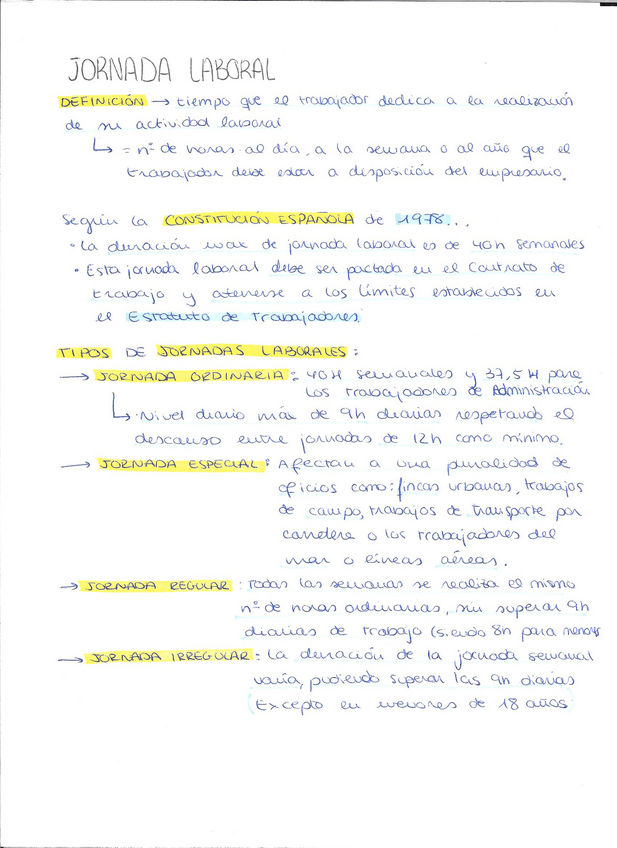 JORNADA LABORAL
DEFINICIÓN → tiempo que el trabajador dedica a la realización
de su actividad laboral
↳ = nº de horas al día, a la semana o al año que el
trabajador debe estar a disposición del empresario.
Según la CONSTITUCIÓN ESPAÑOLA de 1978...
• La duración max de jornada laboral es de 40h semanales
• Esta jornada laboral debe ser pactada en el Contrato de
trabajo y atenerse a los límites establecidos en
el Estatuto de Trabajadores.
TIPOS DE JORNADAS LABORALES:
→ JORNADA ORDINARIA: 40H semanales y 37,5H para
los trabajadores de Administración
↳ Nivel diario máx de 9h diarias respetando el
descanso entre jornadas de 12h como mínimo.
→ JORNADA ESPECIAL: Afectan a una pluralidad de
oficios como: fincas urbanas, trabajos
de campo, trabajos de transporte por
carretera o los trabajadores del
mar o líneas aéreas.
→ JORNADA REGULAR: Todas las semanas se realiza el mismo
nº de horas ordinarias, sin superar 9h
diarias de trabajo (siendo 8h para menores
→ JORNADA IRREGULAR: La duración de la jornada semanal
varía, pudiendo superar las 9h diarias
(Excepto en menores de 18 años